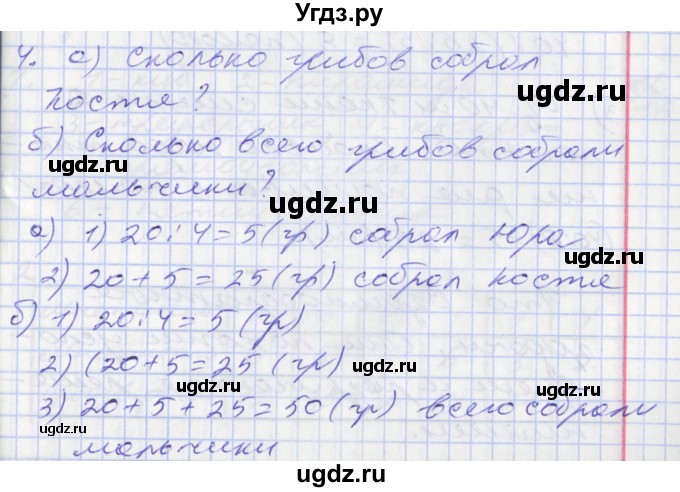 Угдз.ру
4. а) Сколько грибов собрал
Костя?
ugdz.ru
ugdz.ru
б) Сколько всего грибов собрали
ugdz.ru
мальчики?
ugdz.ru
а) 1) 20:4=5(гр) собрал Юра
ugdz.ru
2) 20+5=25(гр) собрал Костя
б) 1) 20:4=5(гр)
2) (20+5=25 (гр)
ugdz.ru
ugdz.ru
3) 20+5+25=50(гр) всего собрали
ugdz.ru
мальчики
ugdz.ru
ugdz.ru